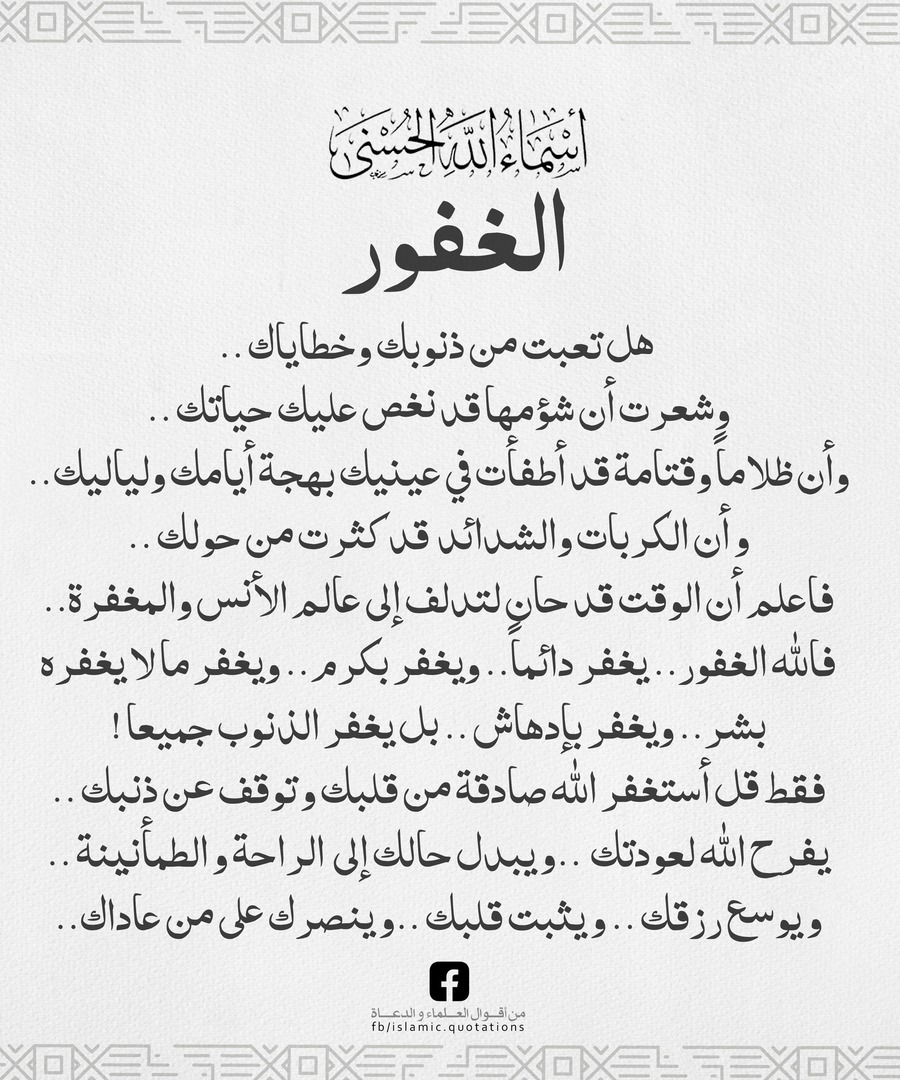 أسْمَاءُ اللَّهِ الحُسْنَى
الغفور
هل تعبت من ذنوبك وخطاياك ..
وشعرت أن شؤمها قد نغص عليك حياتك ..
وأن ظلاماً وقتامة قد أطفأت في عينيك بهجة أيامك ولياليك ..
و أن الكربات والشدائد قد كثرت من حولك ..
فاعلم أن الوقت قد حان لتدلف إلى عالم الأنس والمغفرة ..
فالله الغفور .. يغفر دائماً .. ويغفر بكرم .. ويغفر ما لا يغفره
بشر .. ويغفر بإدهاش .. بل يغفر الذنوب جميعا !
فقط قل أستغفر الله صادقة من قلبك و توقف عن ذنبك ..
يفرح الله لعودتك .. و يبدل حالك إلى الراحة و الطمأنينة ..
ويوسع رزقك .. و يثبت قلبك .. و ينصرك على من عاداك ..
من أقوال العلماء و الدعاة
fb/islamic.quotations